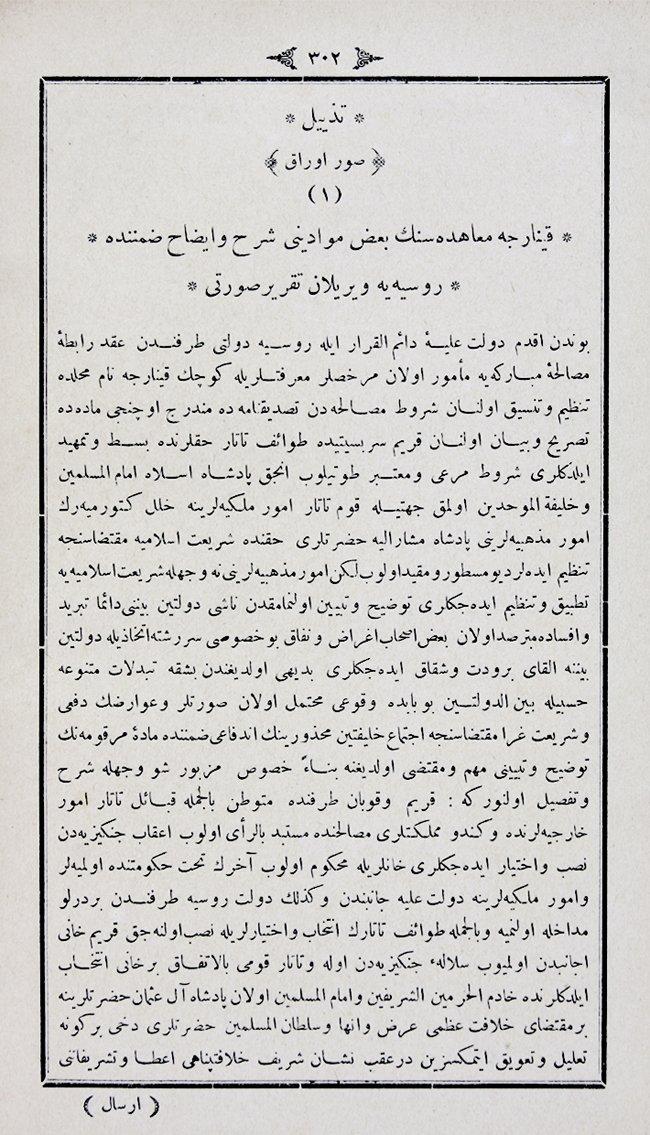 ٣٠٢
* تذييل *
﴿ صور اوراق ﴾
(١)
* قينارجه معاهده‌سنك بعض موادينى شرح وايضاح ضمننده *
* روسيه‌يه ويريلان تقرير صورتى *
بوندن اقدم دولت عليهٔ دائم القرار ايله روسيه دولتى طرفندن عقد رابطهٔ
مصالحهٔ مباركه‌يه مأمور اولان مرخصلر معرفتلريله كوچك قينارجه نام محلده
تنظيم وتنسيق اولنان شروط مصالحه‌دن تصديقنامه‌ده مندرج اوچنجى ماده‌ده
تصريح وبيان اولنان قريم سربسيتيده طوائف تاتار حقلرنده بسط وتمهيد
ايلدكلرى شروط مرعى ومعتبر طوتيلوب انجق پادشاه اسلام امام المسلمين
وخليفة الموحدين اولمق جهتيله قوم تاتار امور ملكيه‌لرينه خلل كتورميه‌رك
امور مذهبيه‌لرينى پادشاه مشاراليه حضرتلرى حقنده شريعت اسلاميه مقتضاسنجه
تنظيم ايده‌لر ديو مسطور ومقيد اولوب لكن امور مذهبيه‌لرينى نه وجهله شريعت اسلاميه‌يه
تطبيق وتنظيم ايده‌جكلرى توضيح وتبيين اولنمامقدن ناشى دولتين بيننى دائما تبريد
وافساده مترصد اولان بعض اصحاب اغراض ونفاق بو خصوصى سررشته اتخاذيله دولتين
بيننه القاى برودت وشقاق ايده‌جكلرى بديهى اولديغندن بشقه تبدلات متنوعه
حسبيله بين الدولتين بوبابده وقوعى محتمل اولان صورتلر وعوارضك دفعى
وشريعت غرا مقتضاسنجه اجتماع خليفتين محذورينك اندفاعى ضمننده مادهٔ مرقومه‌نك
توضيح وتبيينى مهم ومقتضى اولديغنه بناءً خصوص مزبور شو وجهله شرح
وتفصيل اولنوركه : قريم وقوبان طرفنده متوطن بالجمله قبائل تاتار امور
خارجيه‌لرنده وكندو مملكتلرى مصالحنده مستبد بالرأى اولوب اعقاب جنكيزيه‌دن
نصب واختيار ايده‌جكلرى خانلريله محكوم اولوب آخرك تحت حكومتنده اولميه‌لر
وامور ملكيه‌لرينه دولت عليه جانبندن وكذلك دولت روسيه طرفندن بردرلو
مداخله اولنميه وبالجمله طوائف تاتارك انتخاب واختيارلريله نصب اولنه‌جق قريم خانى
اجانبدن اولميوب سلالهٔ جنكيزيه‌دن اوله وتاتار قومى بالاتفاق برخانى انتخاب
ايلدكلرنده خادم الحرمين الشريفين وامام المسلمين اولان پادشاه آل عثمان حضرتلرينه
بر مقتضاى خلافت عظمى عرض وانها وسلطان المسلمين حضرتلرى دخى بركونه
تعليل وتعويق ايتمكسزين درعقب نشان شريف خلافتپناهى اعطا وتشريفاتى
( ارسال )